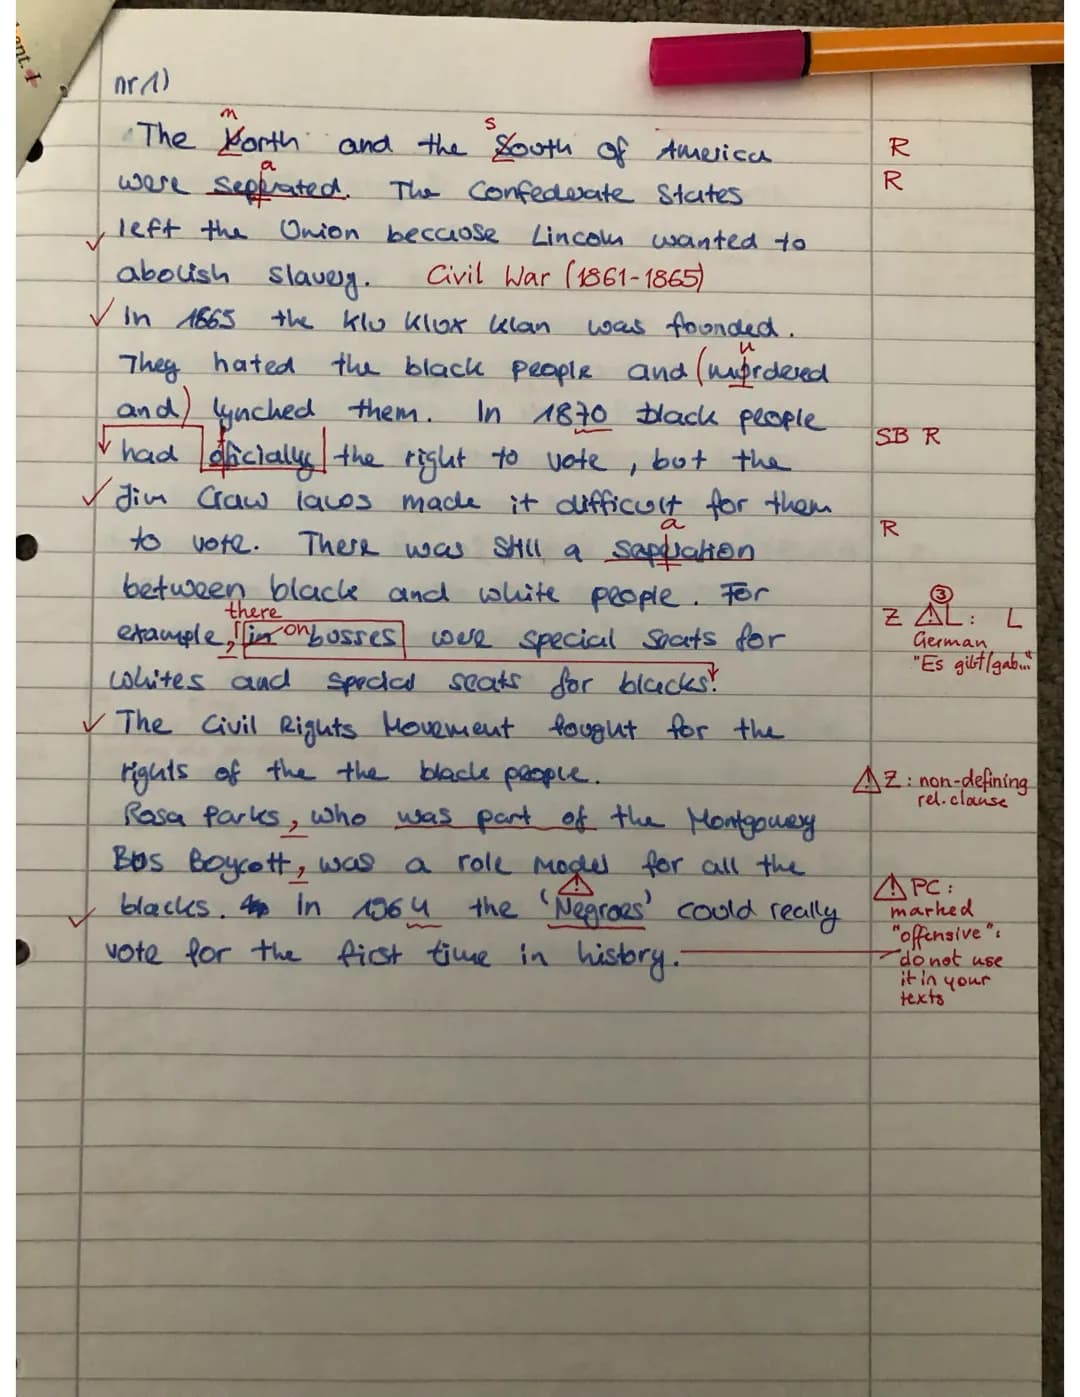 ant. +
nr 1)
m s
The North and the South of America R
a
were sepprated. The Confederate States R
left the Union because Lincoln wanted to
abolish slavery. Civil War (1861-1865)
In 1865 the Klu Klux Klan was founded.
u
They hated the black people and (murdered
and) lynched them. In 1870 black people
had oficially the right to vote, but the SB R
Jim Craw laws made it difficult for them
a
to vote. There was still a sapperation R
between black and white people. For
there
example, in on busses were special seats for Z ③ L: L
German
whites and special seats for blacks. "Es gibt/gab..."
The Civil Rights Movement fought for the
rights of the the black people. Z: non-defining
rel. clause
Rosa Parks, who was part of the Montgomery
Bus Boycott, was a role model for all the
blacks. In 1964 the 'Negroes' could really PC:
marked
"offensive":
vote for the first time in history. do not use
it in your
texts